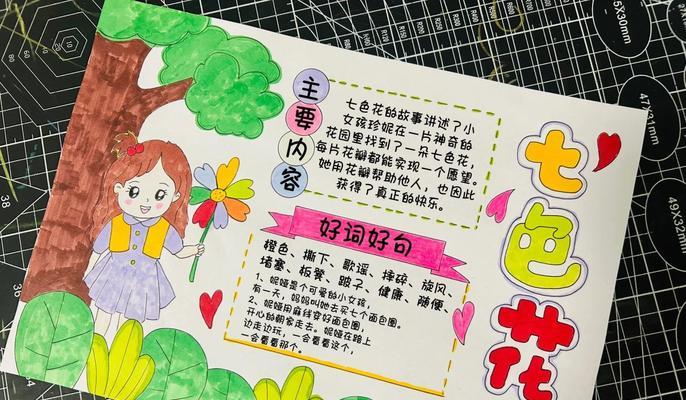 七色花
主要内容
七色花的故事讲述了小
女孩珍妮在一片神奇的
花园里找到了一朵七色花,
每片花瓣都能实现一个愿望。
她用花瓣帮助他人,也因此
获得了真正的快乐。
好词好句
橙色、撕下、歌谣、摔碎、旋风、
堵塞、板凳、跛子、健康、随便、
1、妮娅是个可爱的小女孩,
有一天,妈妈叫她去买七个面包圈。
2、妮娅用麻线穿好面包圈,
开心的朝家走去。妮娅在路上
边走边玩,一会看看这个,
一会看看那个。
45X30mm
47X1
49X32mm
38
36
34
10